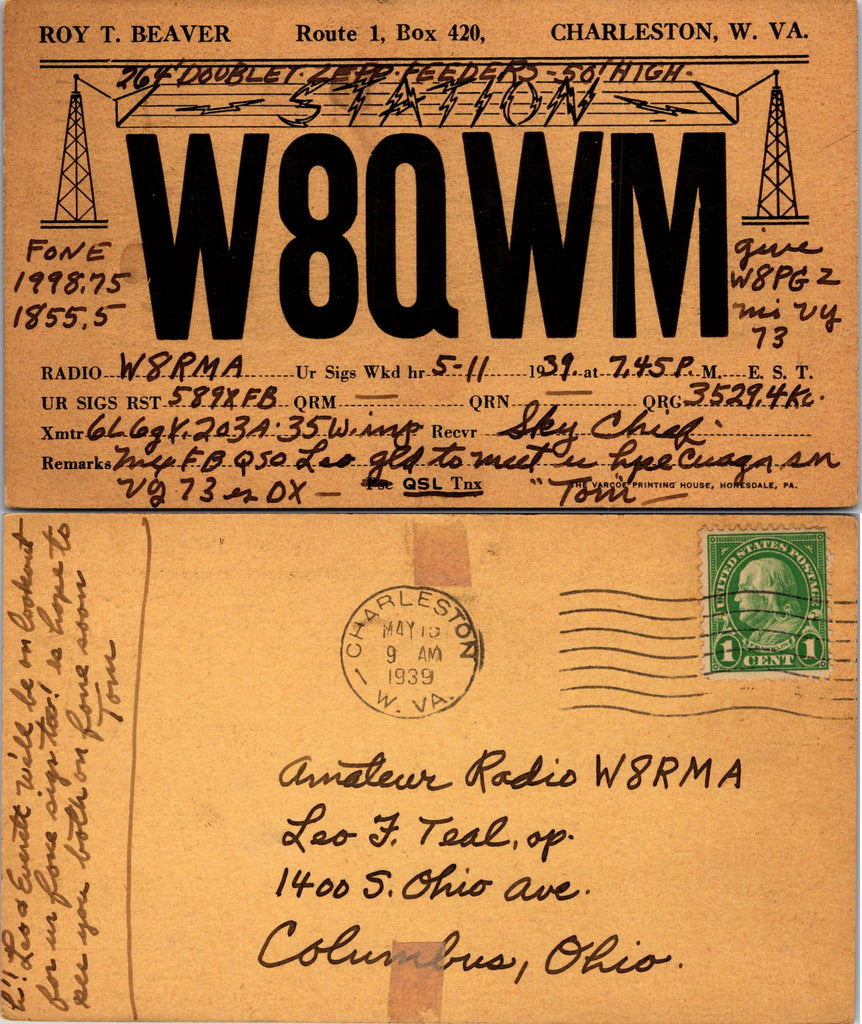 ROY T. BEAVER Route 1, Box 420, CHARLESTON, W. VA.
264' DOUBLET. ZEPP. FEEDERS - 50' HIGH.
STATION
W8QWM
FONE
1998.75
1855.5
give
W8PGZ
mi vy
73
RADIO W8RMA Ur Sigs Wkd hr 5-11 1939. at 7.45 P. M. E. S. T.
UR SIGS RST 589X FB QRM — QRN — QRG 3529.4 Kc.
Xmtr 6L6gX. 203A. 35 W. inp Recvr Sky Chief.
Remarks FB QSO Leo gld to meet u hpe cuagn sn
Vy 73 es DX — Pse QSL Tnx "Tom" —
THE VARCOE PRINTING HOUSE, HONESDALE, PA.
CHARLESTON
MAY 13
9 AM
1939
W. VA.
UNITED STATES POSTAGE
FRANKLIN
1 CENT 1
Amateur Radio W8RMA
Leo F. Teal, op.
1400 S. Ohio Ave.
Columbus, Ohio.
Leo & Everett will be on lookout
for ur fone sigs too! es hope to
see you both on fone soon
Tom